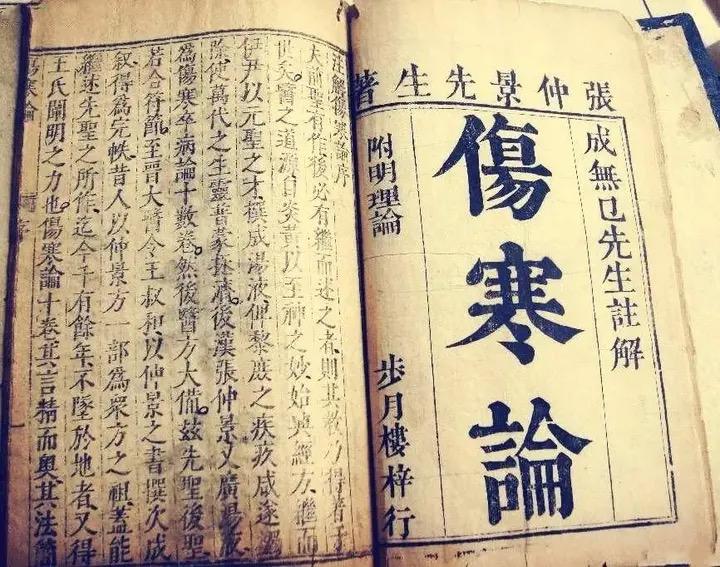 張仲景先生著
成無已先生註解
傷寒論
附明理論
步月樓梓行
注解傷寒論序
夫前聖有作後必有繼而述之者則其教乃得著于
世矣。醫之道源自炎黃以至神之妙始興經方繼而
伊尹以元聖之才撰成湯液俾黎庶之疾疢咸遂蠲
除使萬代之生靈普蒙拯濟後漢張仲景又廣湯液
為傷寒卒病論十數卷。然後醫方大備。茲先聖後聖
若合符節。至晉大醫令王叔和以仲景之書撰次成
敘得為完帙昔人以仲景方一部為衆方之祖蓋能
繼述先聖之所作。迄今千有餘年不墜於地者又得
王氏闡明之力也。傷寒論十卷其言精而奧其法簡
傷寒論